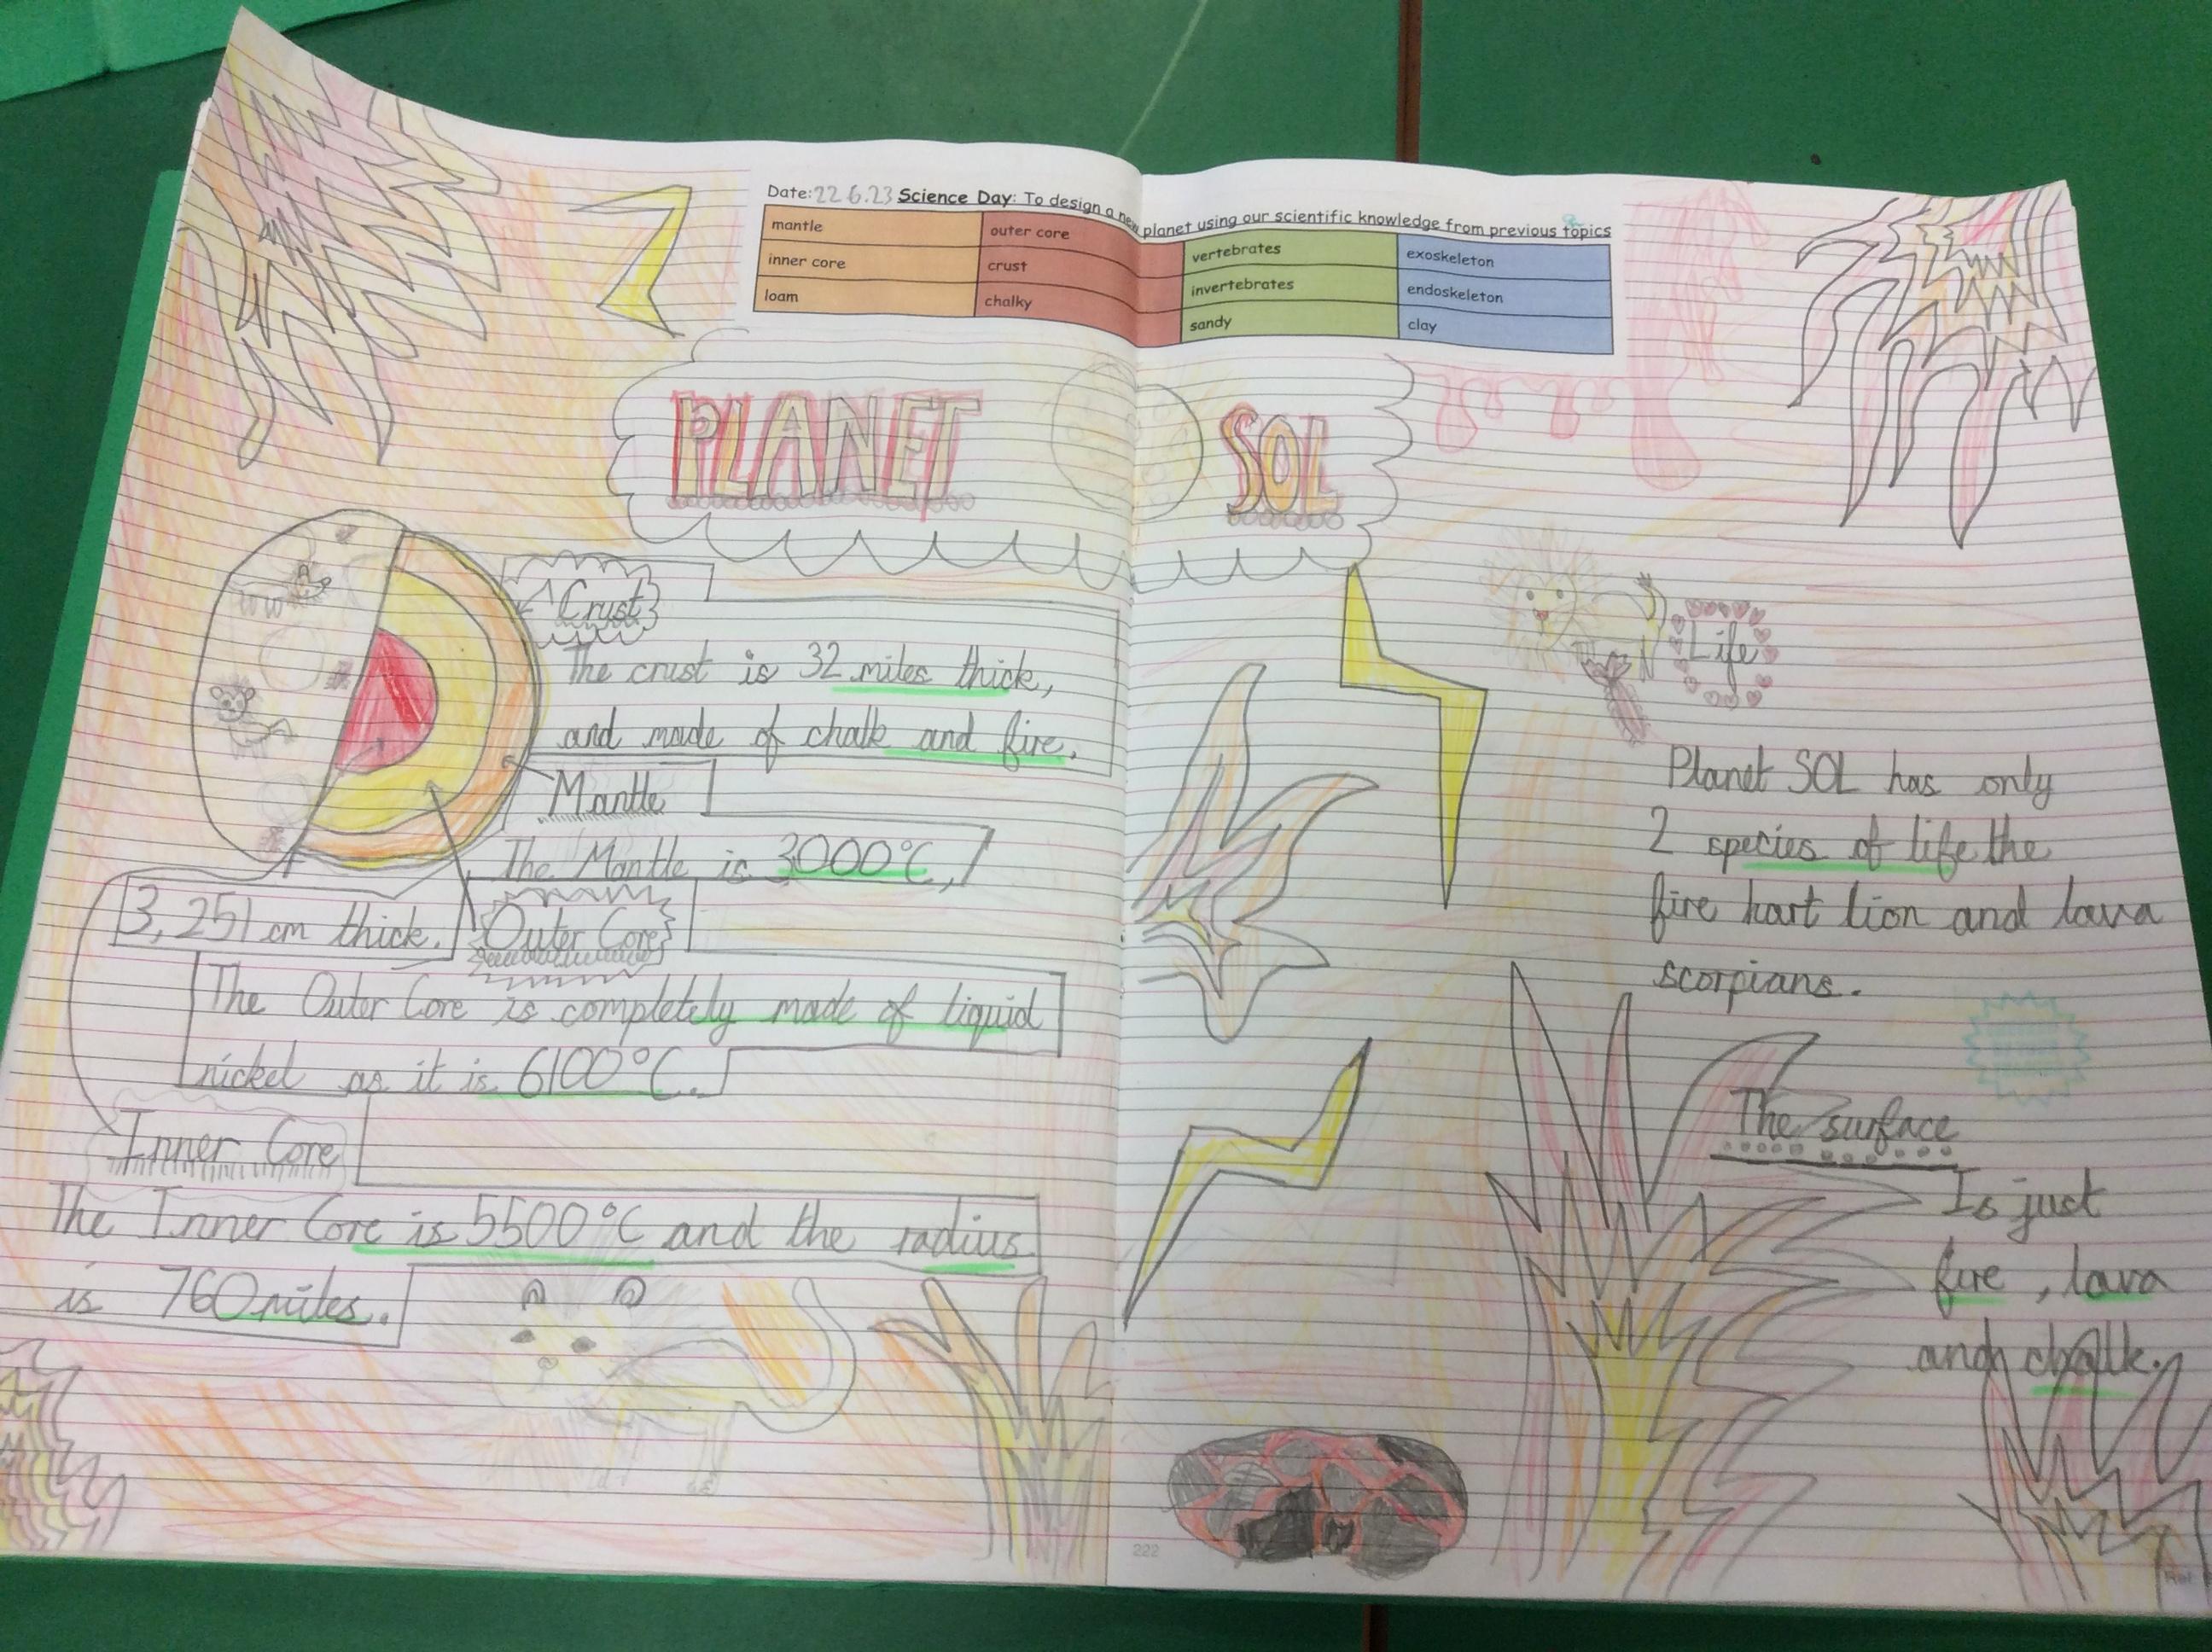 Date: 22.6.23 Science Day: To design a new planet using our scientific knowledge from previous topics
mantle outer core vertebrates exoskeleton
inner core crust invertebrates endoskeleton
loam chalky sandy clay
PLANET SOL
Crust
The crust is 32 miles thick,
and made of chalk and fire.
Mantle
The Mantle is 3000°C,
3,251 cm thick.
Outer Core
The Outer Core is completely made of liquid
nickel as it is 6100°C.
Inner Core
The Inner Core is 5500°C and the radius
is 760 miles.
Life
Planet SOL has only
2 species of life the
fire hart lion and lava
scorpians.
The surface
Is just
fire, lava
and chalk.
222